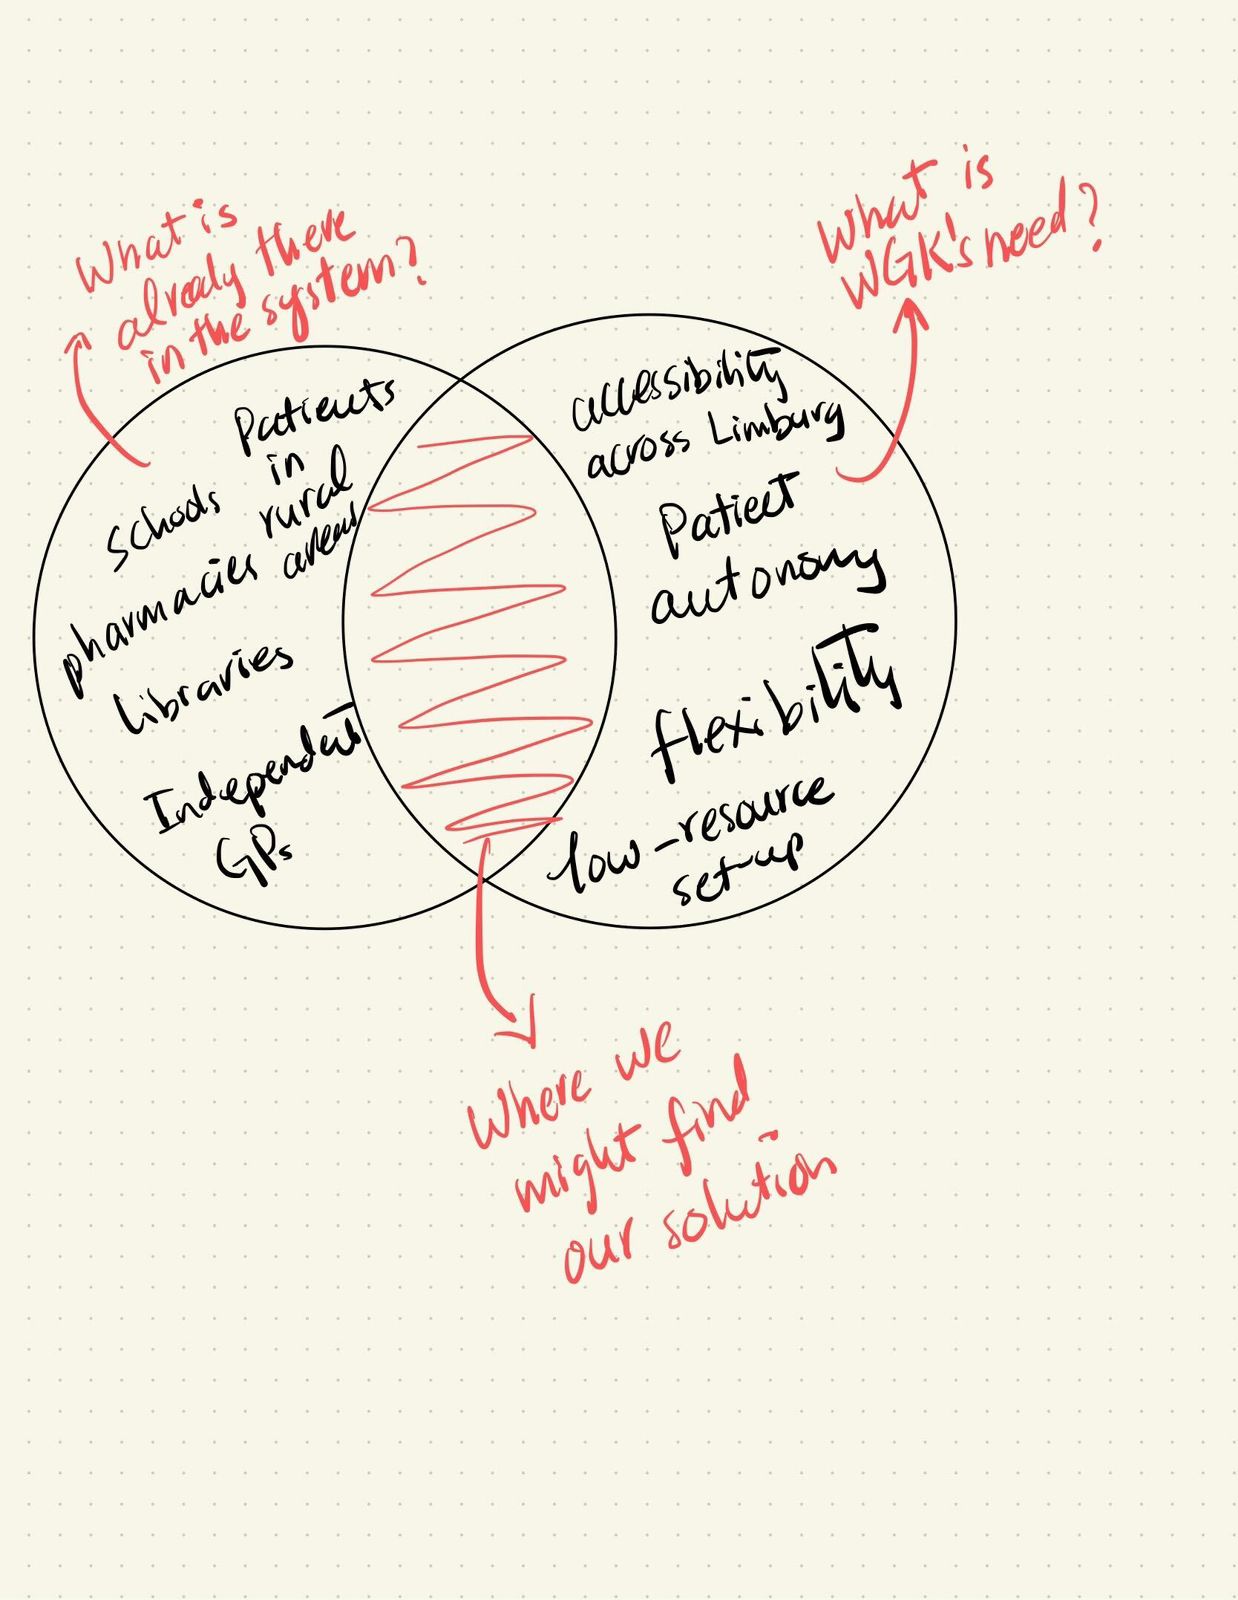 What is
already there
in the system?
What is
WGK's need?
Patients
in
rural
areas
Schools
pharmacies
Libraries
Independent
GPs
accessibility
across Limburg
Patient
autonomy
flexibility
low-resource
set-up
Where we
might find
our solution